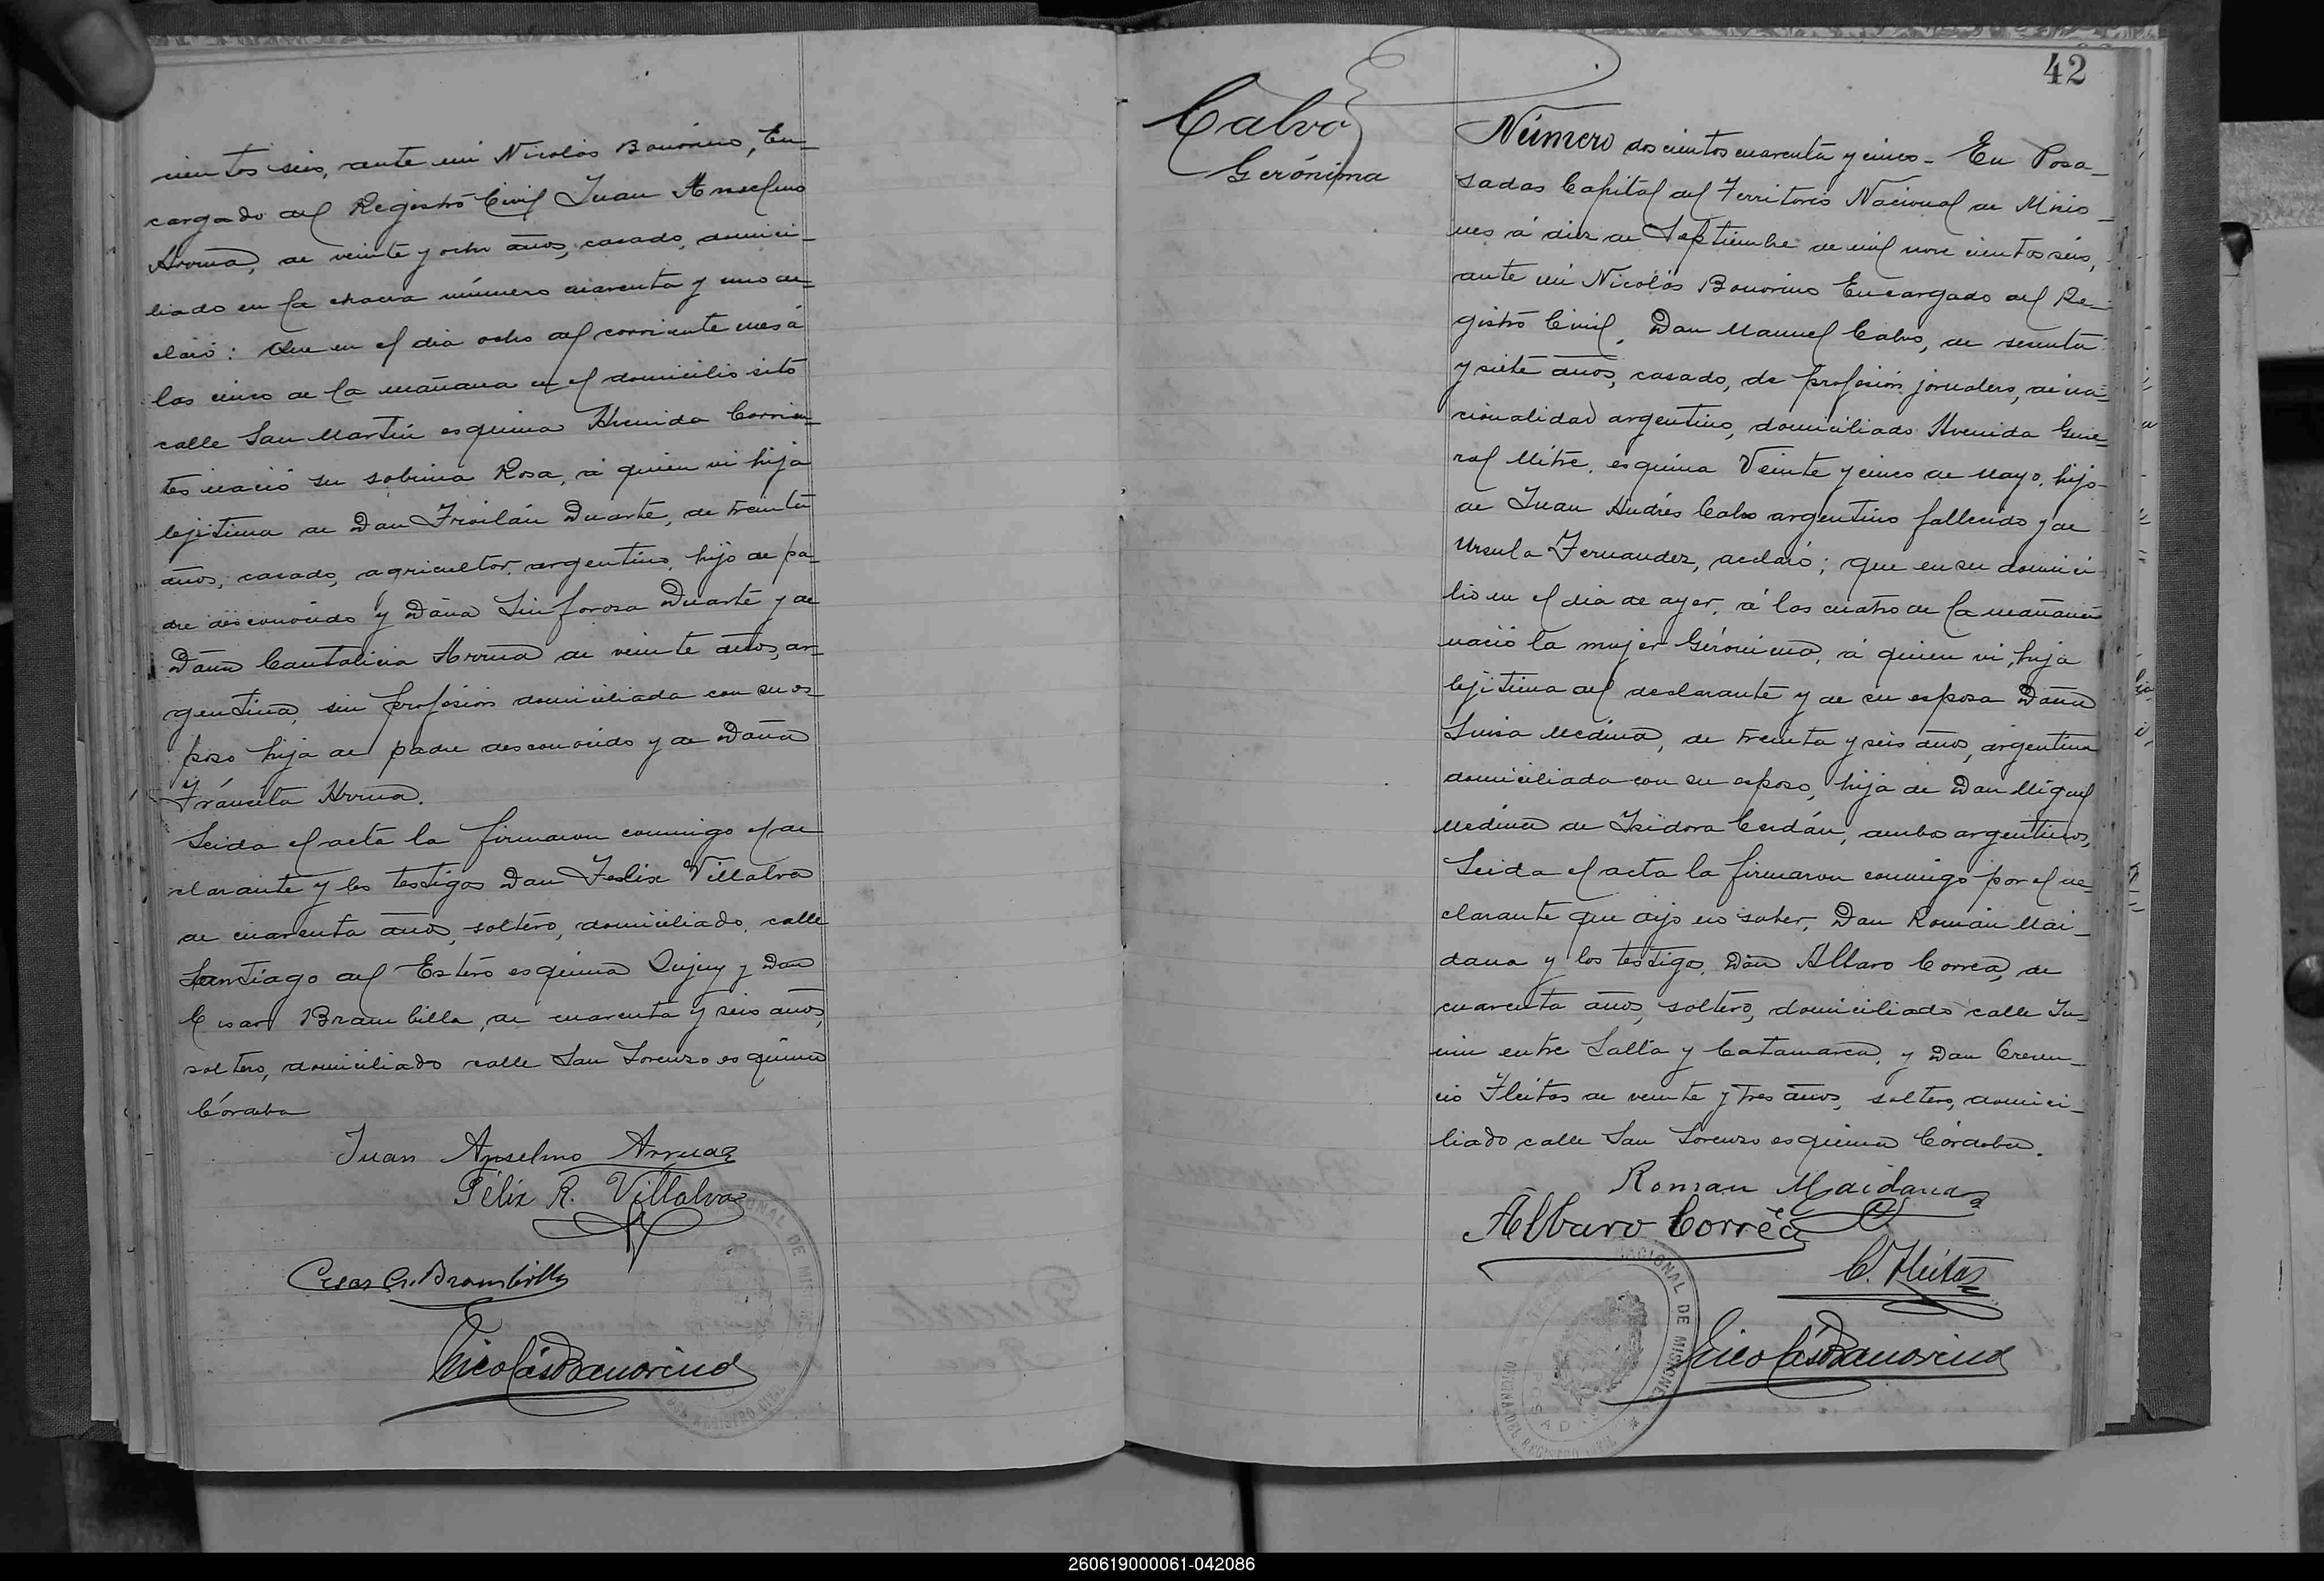 cientos seis, ante mi Nicolás Bonorino, En-
cargado del Registro Civil Juan Anselmo
Arrua, de veinte y ocho años, casado, domici-
liado en la chacra número cuarenta y uno de-
claró: Que en el dia ocho del corriente mes á
las cinco de la mañana en el domicilio sito
calle San Martin esquina Avenida Corrien-
tes nació su sobrina Rosa, á quien vi hija
lejitima de Don Froilán Duarte, de treinta
años, casado, agricultor, argentino, hijo de pa-
dre desconocido y Doña Sinforosa Duarte y de
Doña Cantalicia Arrua de veinte años, ar-
gentina, sin profesion domiciliada con su es-
poso hija de padre desconocido y de Doña
Fráncita Arrua.
Leida el acta la firmaron conmigo el de-
clarante y los testigos Don Felix Villalva
de cuarenta años, soltero, domiciliado, calle
Santiago del Estero esquina Jujuy y Don
Cesar Brambilla, de cuarenta y seis años,
soltero, domiciliado calle San Lorenzo esquina
Córdoba
Juan Anselmo Arruaz
Félix R. Villalva
Cesar Brambilla
Nicolás Bonorino
42
Calvo
Gerónima
Número doscientos cuarenta y cinco - En Posa-
sadas Capital del Territorio Nacional de Misio-
nes á diez de Septiembre de mil novecientos séis,
ante mi Nicolás Bonorino Encargado del Re-
gistro Civil, Don Manuel Calvo, de sesenta
y siete años, casado, de profesión jornalero, de na-
cionalidad argentino, domiciliado Avenida Gene-
ral Mitre, esquina Veinte y cinco de Mayo, hijo
de Juan Andrés Calvo argentino fallecido y de
Ursula Fernandez, declaró; que en su domici-
lio en el dia de ayer, á las cuatro de la mañana
nació la mujer Gerónima, á quien vi, hija
lejitima del declarante y de su esposa Doña
Luisa Medina, de treinta y seis años, argentina
domiciliada con su esposo, hija de Don Miguel
Medina de Isidora Cerdán, ambos argentinos,
Leida el acta la firmaron conmigo por el de-
clarante que dijo no saber, Don Román Mai-
dana y los testigos, Don Albaro Correa, de
cuarenta años, soltero, domiciliado calle Ju-
nin entre Salta y Catamarca, y Don Crecen-
cio Fleitas de veinte y tres años, soltero, domici-
liado calle San Lorenzo esquina Córdoba.
Roman Maidana
Albaro Corrêa
C. Fleitas
Nicolás Bonorino
NACIONAL DE MISIONES
OFICINA DEL REGISTRO CIVIL
POSADAS
260619000061-042086